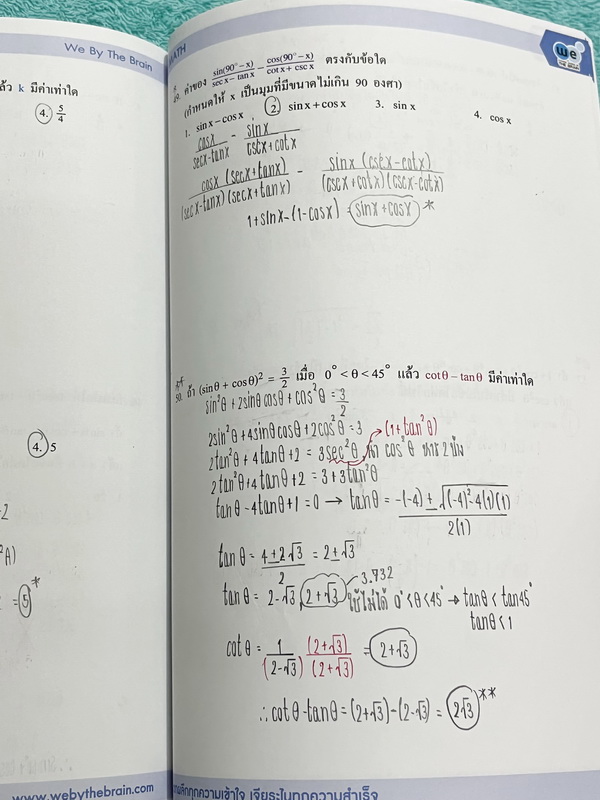 We By The Brain
ล้ว k มีค่าเท่าใด
4. 5/4
4. 5
2
²A)
= 5 *
www.webythebrain.com
MATH
we
49. ค่าของ sin(90°−x)/(sec x − tan x) − cos(90°−x)/(cot x + csc x) ตรงกับข้อใด
(กำหนดให้ x เป็นมุมที่มีขนาดไม่เกิน 90 องศา)
1. sin x − cos x 2. sin x + cos x 3. sin x 4. cos x
cosx/(secx-tanx) - sinx/(cscx+cotx)
cosx (secx+tanx)/((secx-tanx)(secx+tanx)) - sinx (cscx-cotx)/((cscx+cotx)(cscx-cotx))
1+sinx-(1-cosx) = sinx+cosx *
50. ถ้า (sinθ + cosθ)² = 3/2 เมื่อ 0° < θ < 45° แล้ว cotθ − tanθ มีค่าเท่าใด
sin²θ + 2sinθcosθ + cos²θ = 3/2
2sin²θ + 4sinθcosθ + 2cos²θ = 3 (1+tan²θ)
2tan²θ + 4tanθ + 2 = 3sec²θ cos²θ หาร 2 ข้าง
2tan²θ + 4tanθ + 2 = 3 + 3tan²θ
tanθ - 4tanθ + 1 = 0 → tanθ = (-(-4) ± √((-4)²-4(1)(1)))/2(1)
tanθ = (4±2√3)/2 = 2±√3
3.732
tanθ = 2-√3, 2+√3 ใช้ไม่ได้ 0°<θ<45° → tanθ < tan45°
tanθ < 1
cotθ = 1/(2-√3) (2+√3)/(2+√3) = 2+√3
∴ cotθ-tanθ = (2+√3)-(2-√3) = 2√3 **
ทุกความเข้าใจ เจียระไนทุกความสำเร็จ